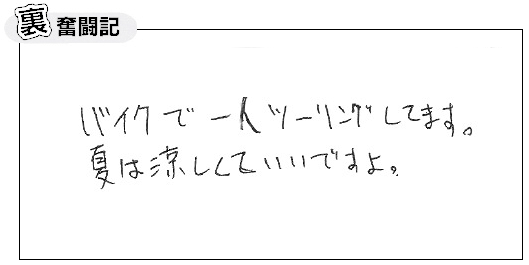 裏奮闘記
バイクで一人ツーリングしてます。
夏は涼しくていいですよ。